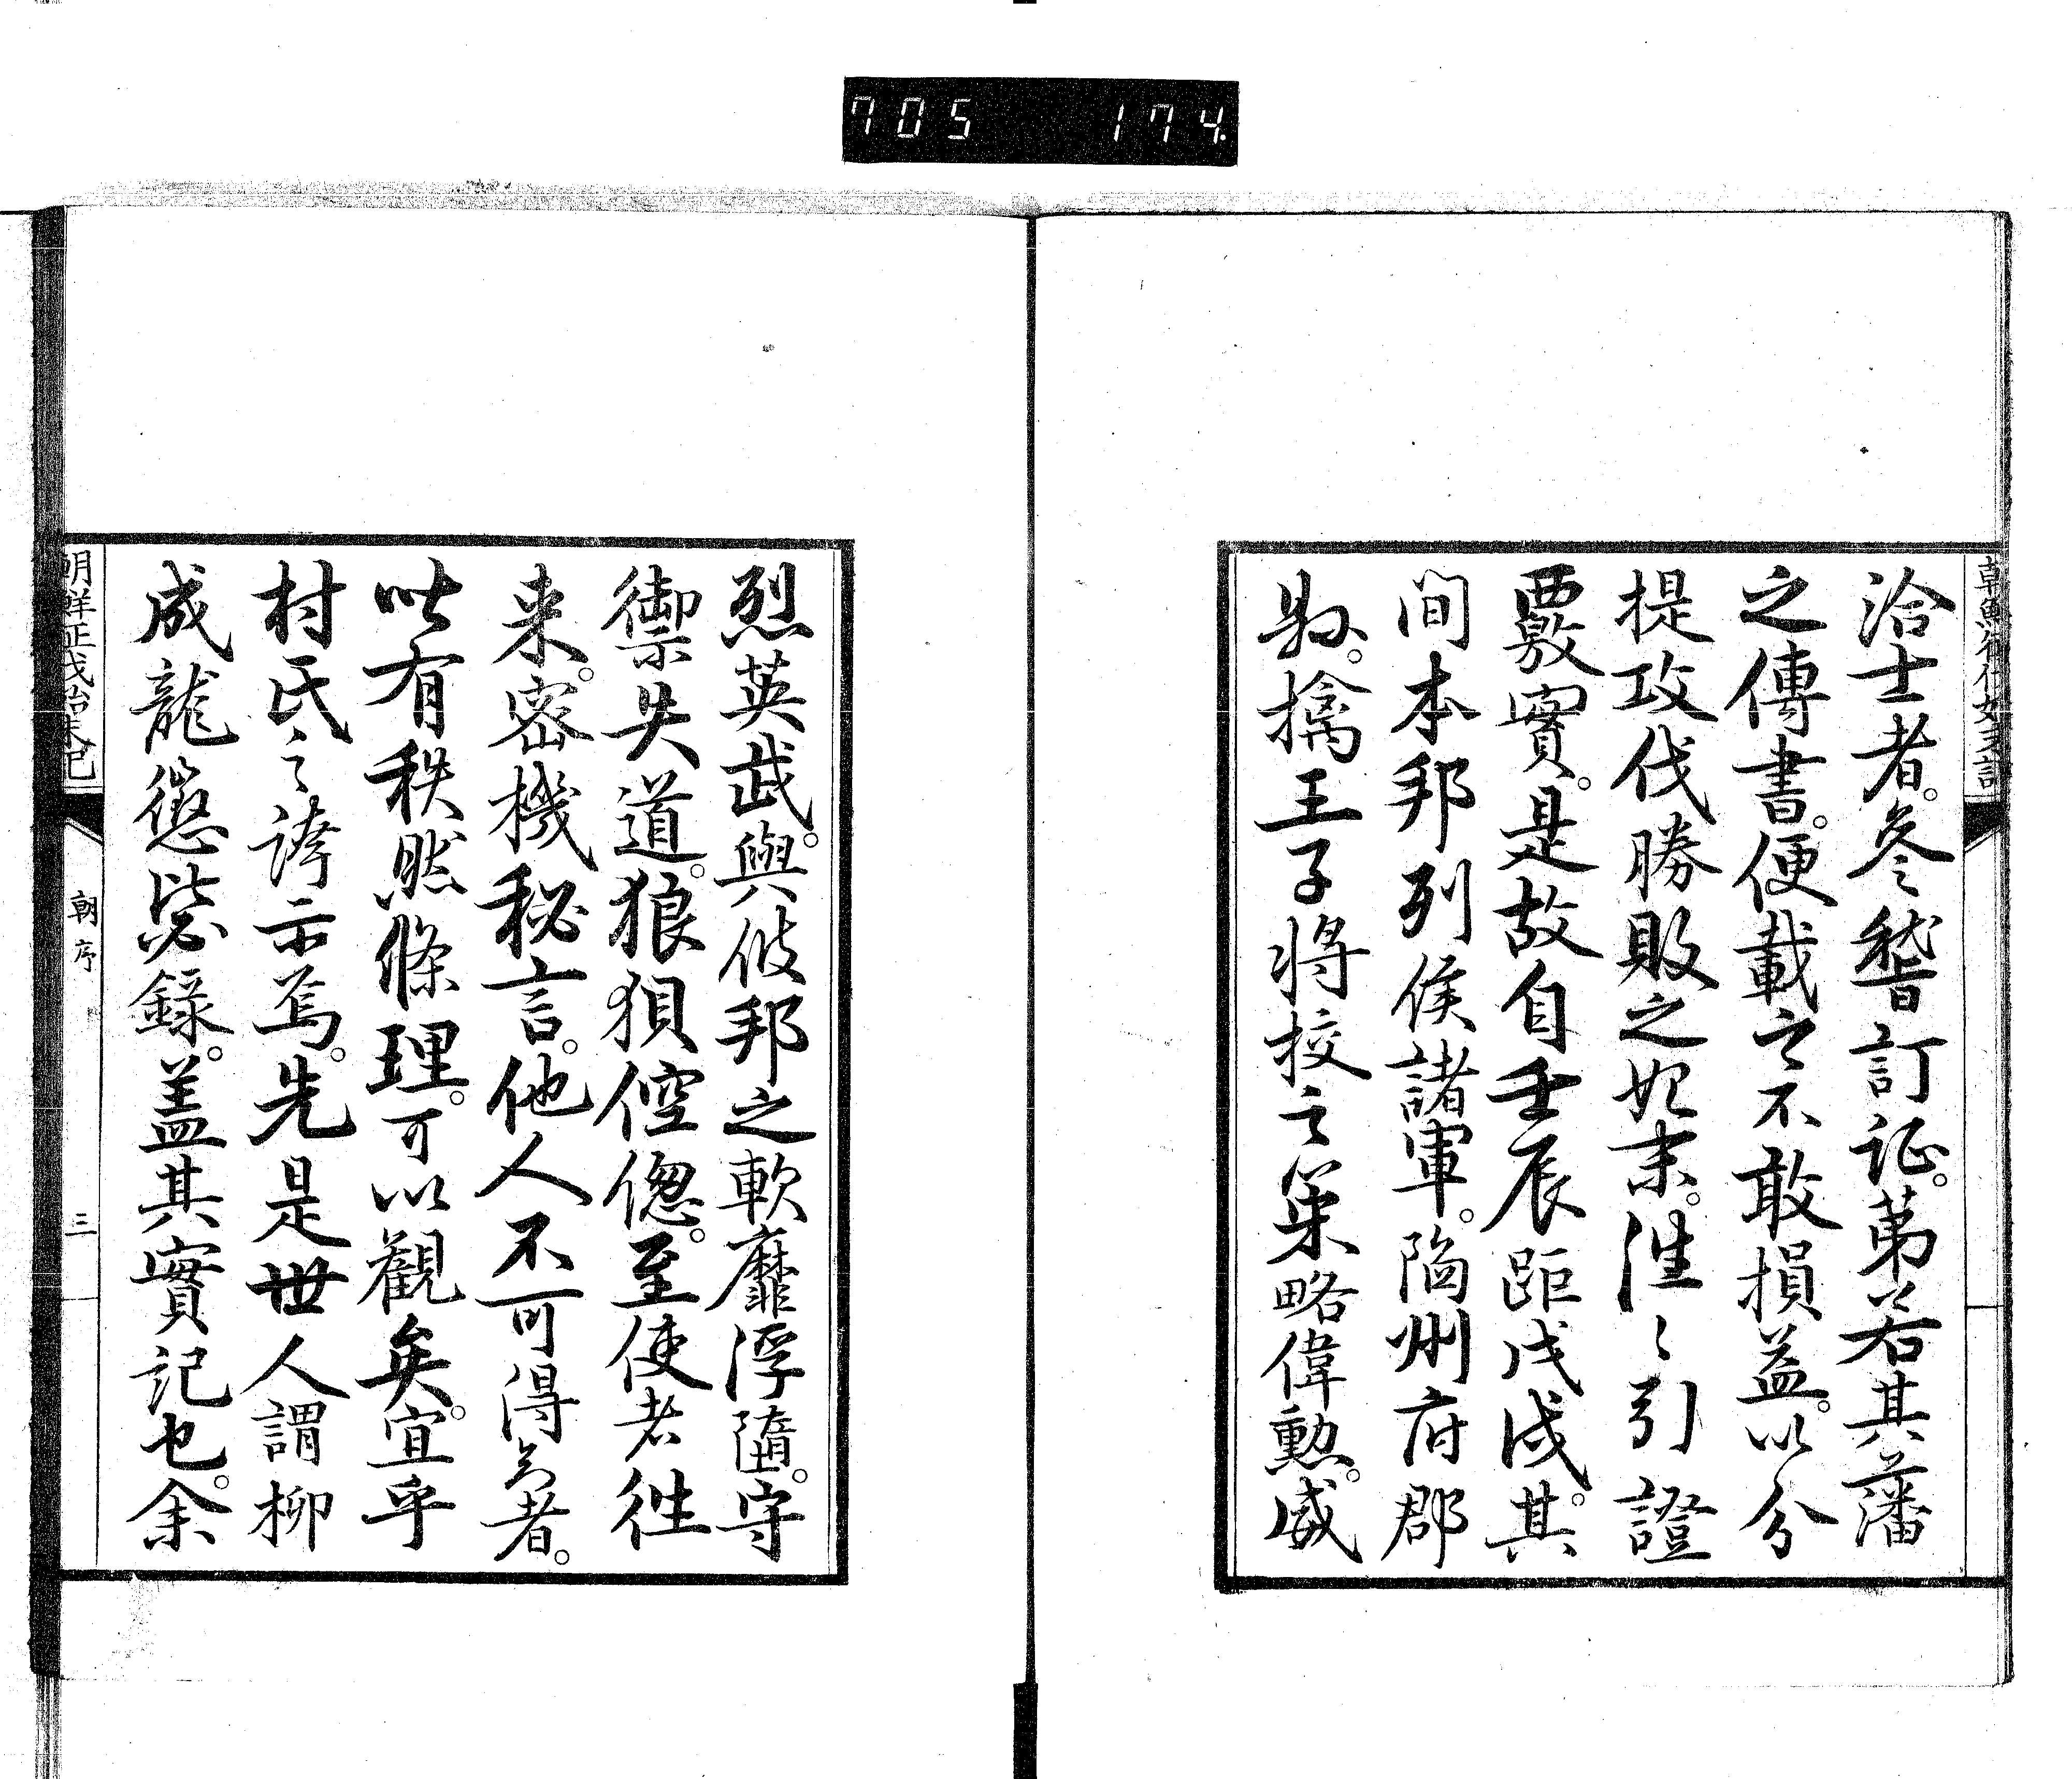 705 174
朝鮮征伐始末記
洽士者。參稽訂証。第若其藩
之傳書。便載之不敢損益。以分
提攻伐勝敗之始末。往〻引證
覈實。是故自壬辰距戊戌。其
間本邦列侯諸軍。陷州府郡
縣。擒王子將校之策略偉勳。威
烈英武。與彼邦之軟靡浮墮。守
禦失道。狼狽倥偬。至使者往
来。密機秘言。他人不可得知者。
咄有秩然條理。可以觀矣。宜乎
村氏之誇示焉。先是世人謂柳
成龍懲毖錄。盖其實記也。余
朝鮮征伐始末記
朝序
三